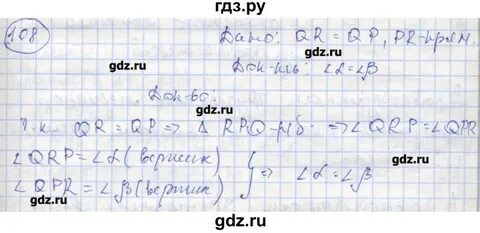 гдз.ру
108
Дано: QR = QP, PR-прям.
gdz.ru
Док-ть: ∠α=∠β
Док-во:
gdz.ru
Т.к QR = QP => Δ RPQ-р/б. => ∠QRP = ∠QPR
∠QRP = ∠α (вертик)
∠QPR = ∠β (вертик) } => ∠α = ∠β
gdz.ru
gdz.ru